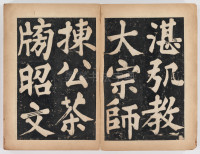 湛然教
大宗師
揀公茶
牓昭文